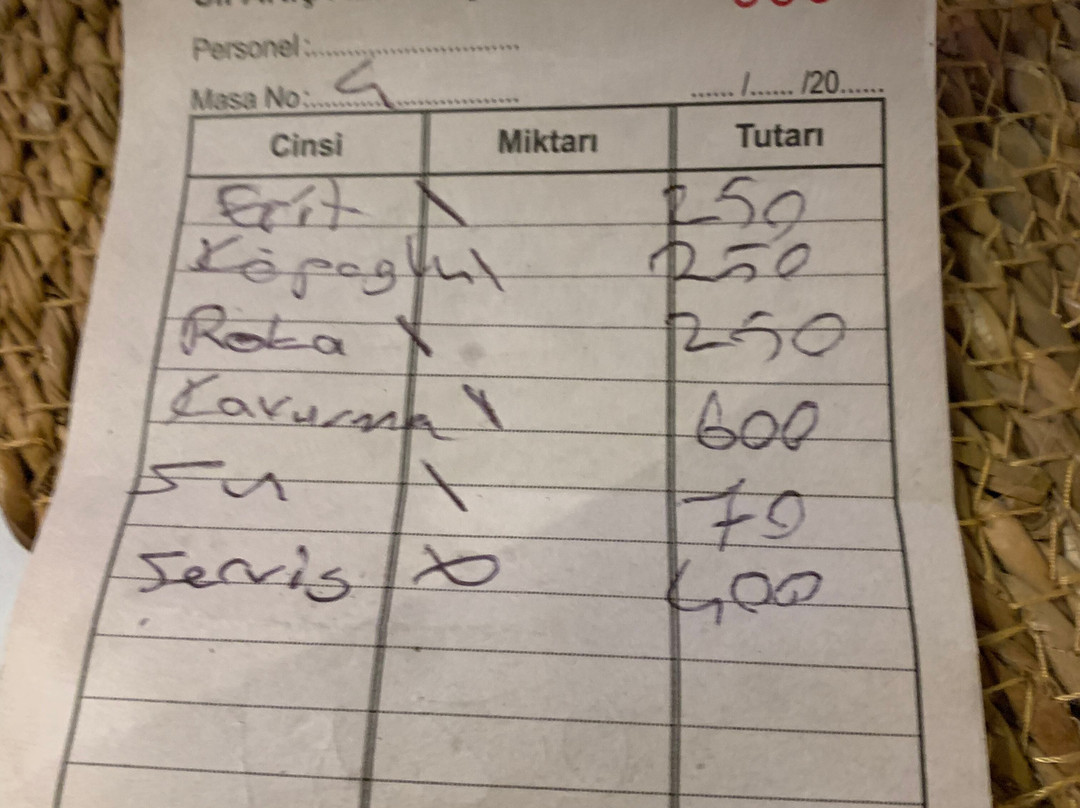 Personel:
Masa No: 4 ....../....../20......
Cinsi Miktarı Tutarı
Erit \ 250
250
Roka \ 250
Kavurma \ 600
Su \ 70
Servis 400